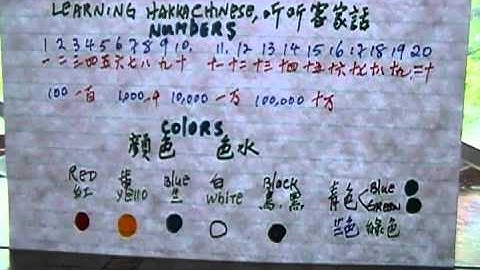 LEARNING HAKKACHINESE, 听听客家話
NUMBERS
1 2 3 4 5 6 7 8 9 10, 11, 12 13 14 15 16 17 18 19 20
一 二 三 四 五 六 七 八 九 十 十一 十二 十三 十四 十五 十六 十七 十八 十九, 二十
100 一百 1,000 一千 10,000 一万 100,000 十万
COLORS
顏色 色水
RED Blue 白 Black 青色 Blue
紅 yello 兰 white 烏,黑 GREEN
兰色 綠色